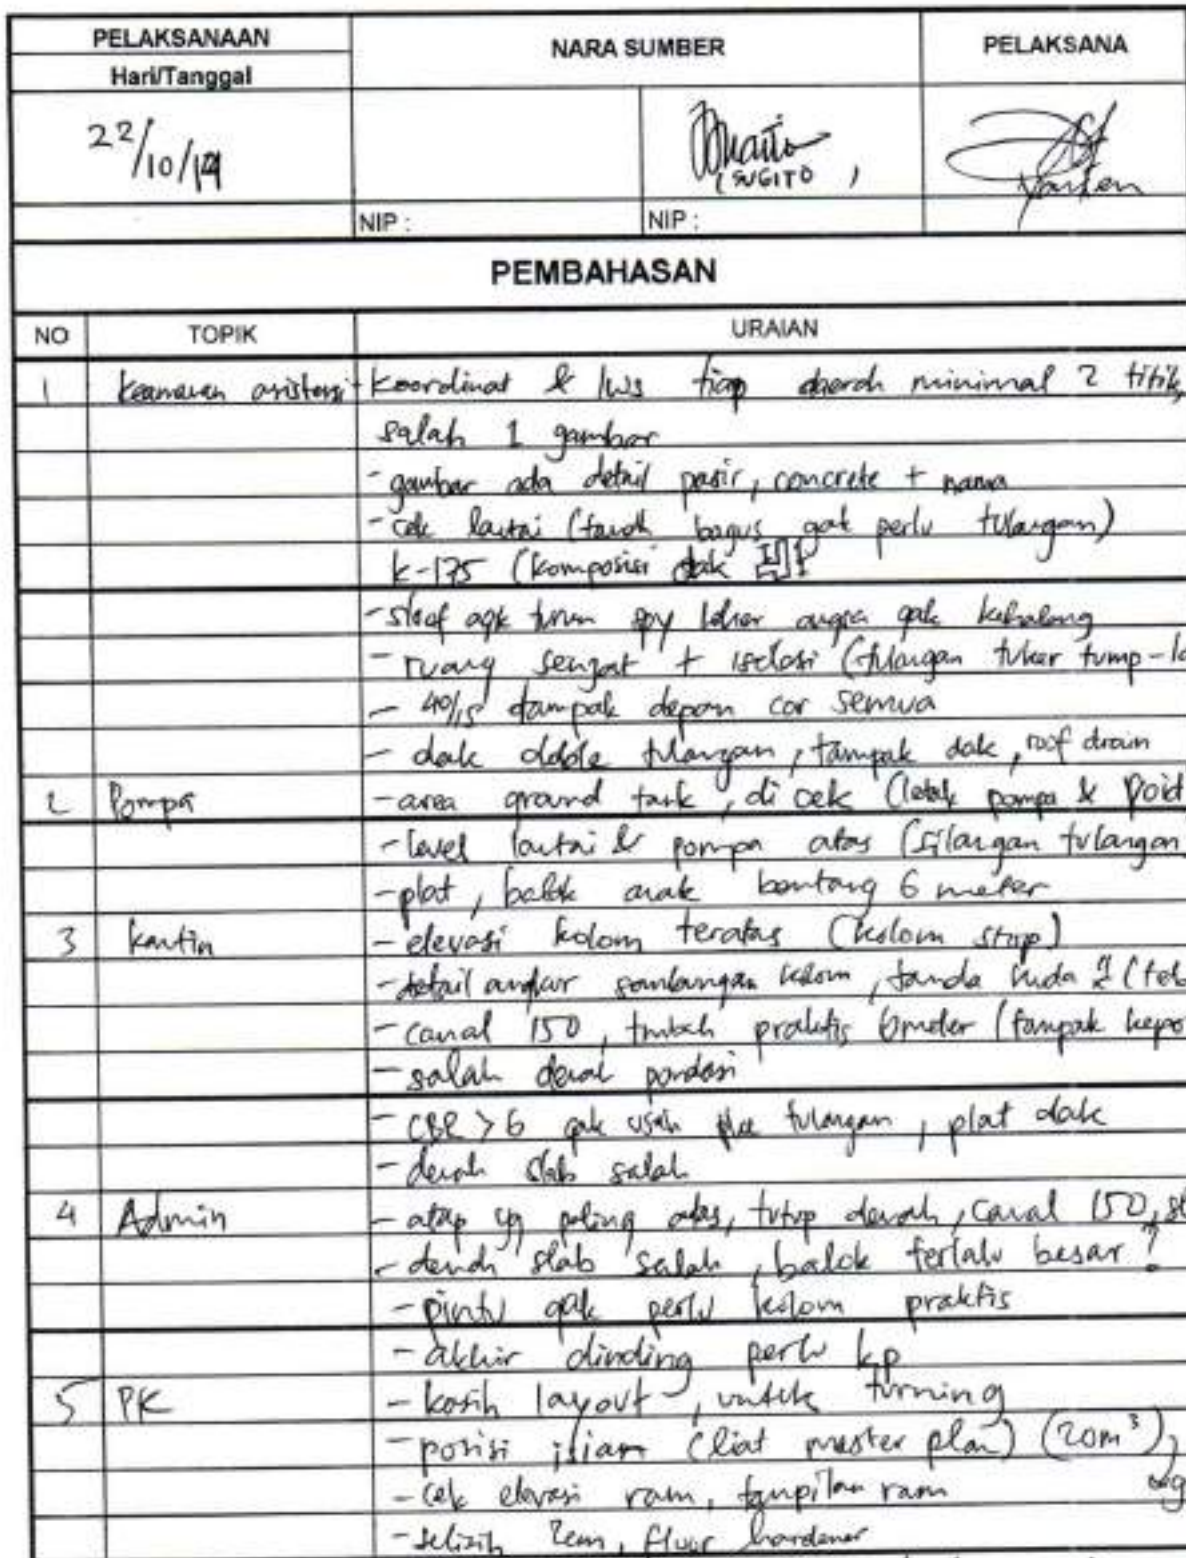 PELAKSANAAN
Hari/Tanggal
NARA SUMBER
PELAKSANA
22/10/19
(SUGITO)
NIP :
NIP :
PEMBAHASAN
NO TOPIK URAIAN
1 Keamanan asistensi - koordinat & lws tiap daerah minimal 2 titik,
salah 1 gambar
- gambar ada detail pasir, concrete + nama
- cek lantai (tanah bagus gak perlu tulangan)
k-175 (komposisi dak
- sloof agk turun spy loker angsa gak kehalang
- ruang senjat + isolasi (tulangan tuker tump-la
- 40/15 tampak depan cor semua
- dak doble tulangan, tampak dak, roof drain
2 Pompa - area ground tank, di cek (letak pompa &
- level lantai & pompa atas (silangan tulangan
- plat, balok anak bentang 6 meter
3 kantin - elevasi kolom teratas (kolom stop)
- detail angkur sambungan kolom, tanda kuda 2 (teb
- canal 150, tmbah praktis 6 meter (tampak kepo
- salah denah pondasi
- CBR > 6 gak usah tulangan, plat dak
- denah slab salah
4 Admin - atap yg paling atas, tutup denah, canal 150, sl
- denah slab salah, balok terlalu besar?
- pintu gak perlu kolom praktis
- akhir dinding perlu kp
5 PK - kasih layout, untuk turning
- posisi isian (liat master plan) (20m³),
- cek elevasi ram, tampilan ram
- selisih 2cm, fluor hardener